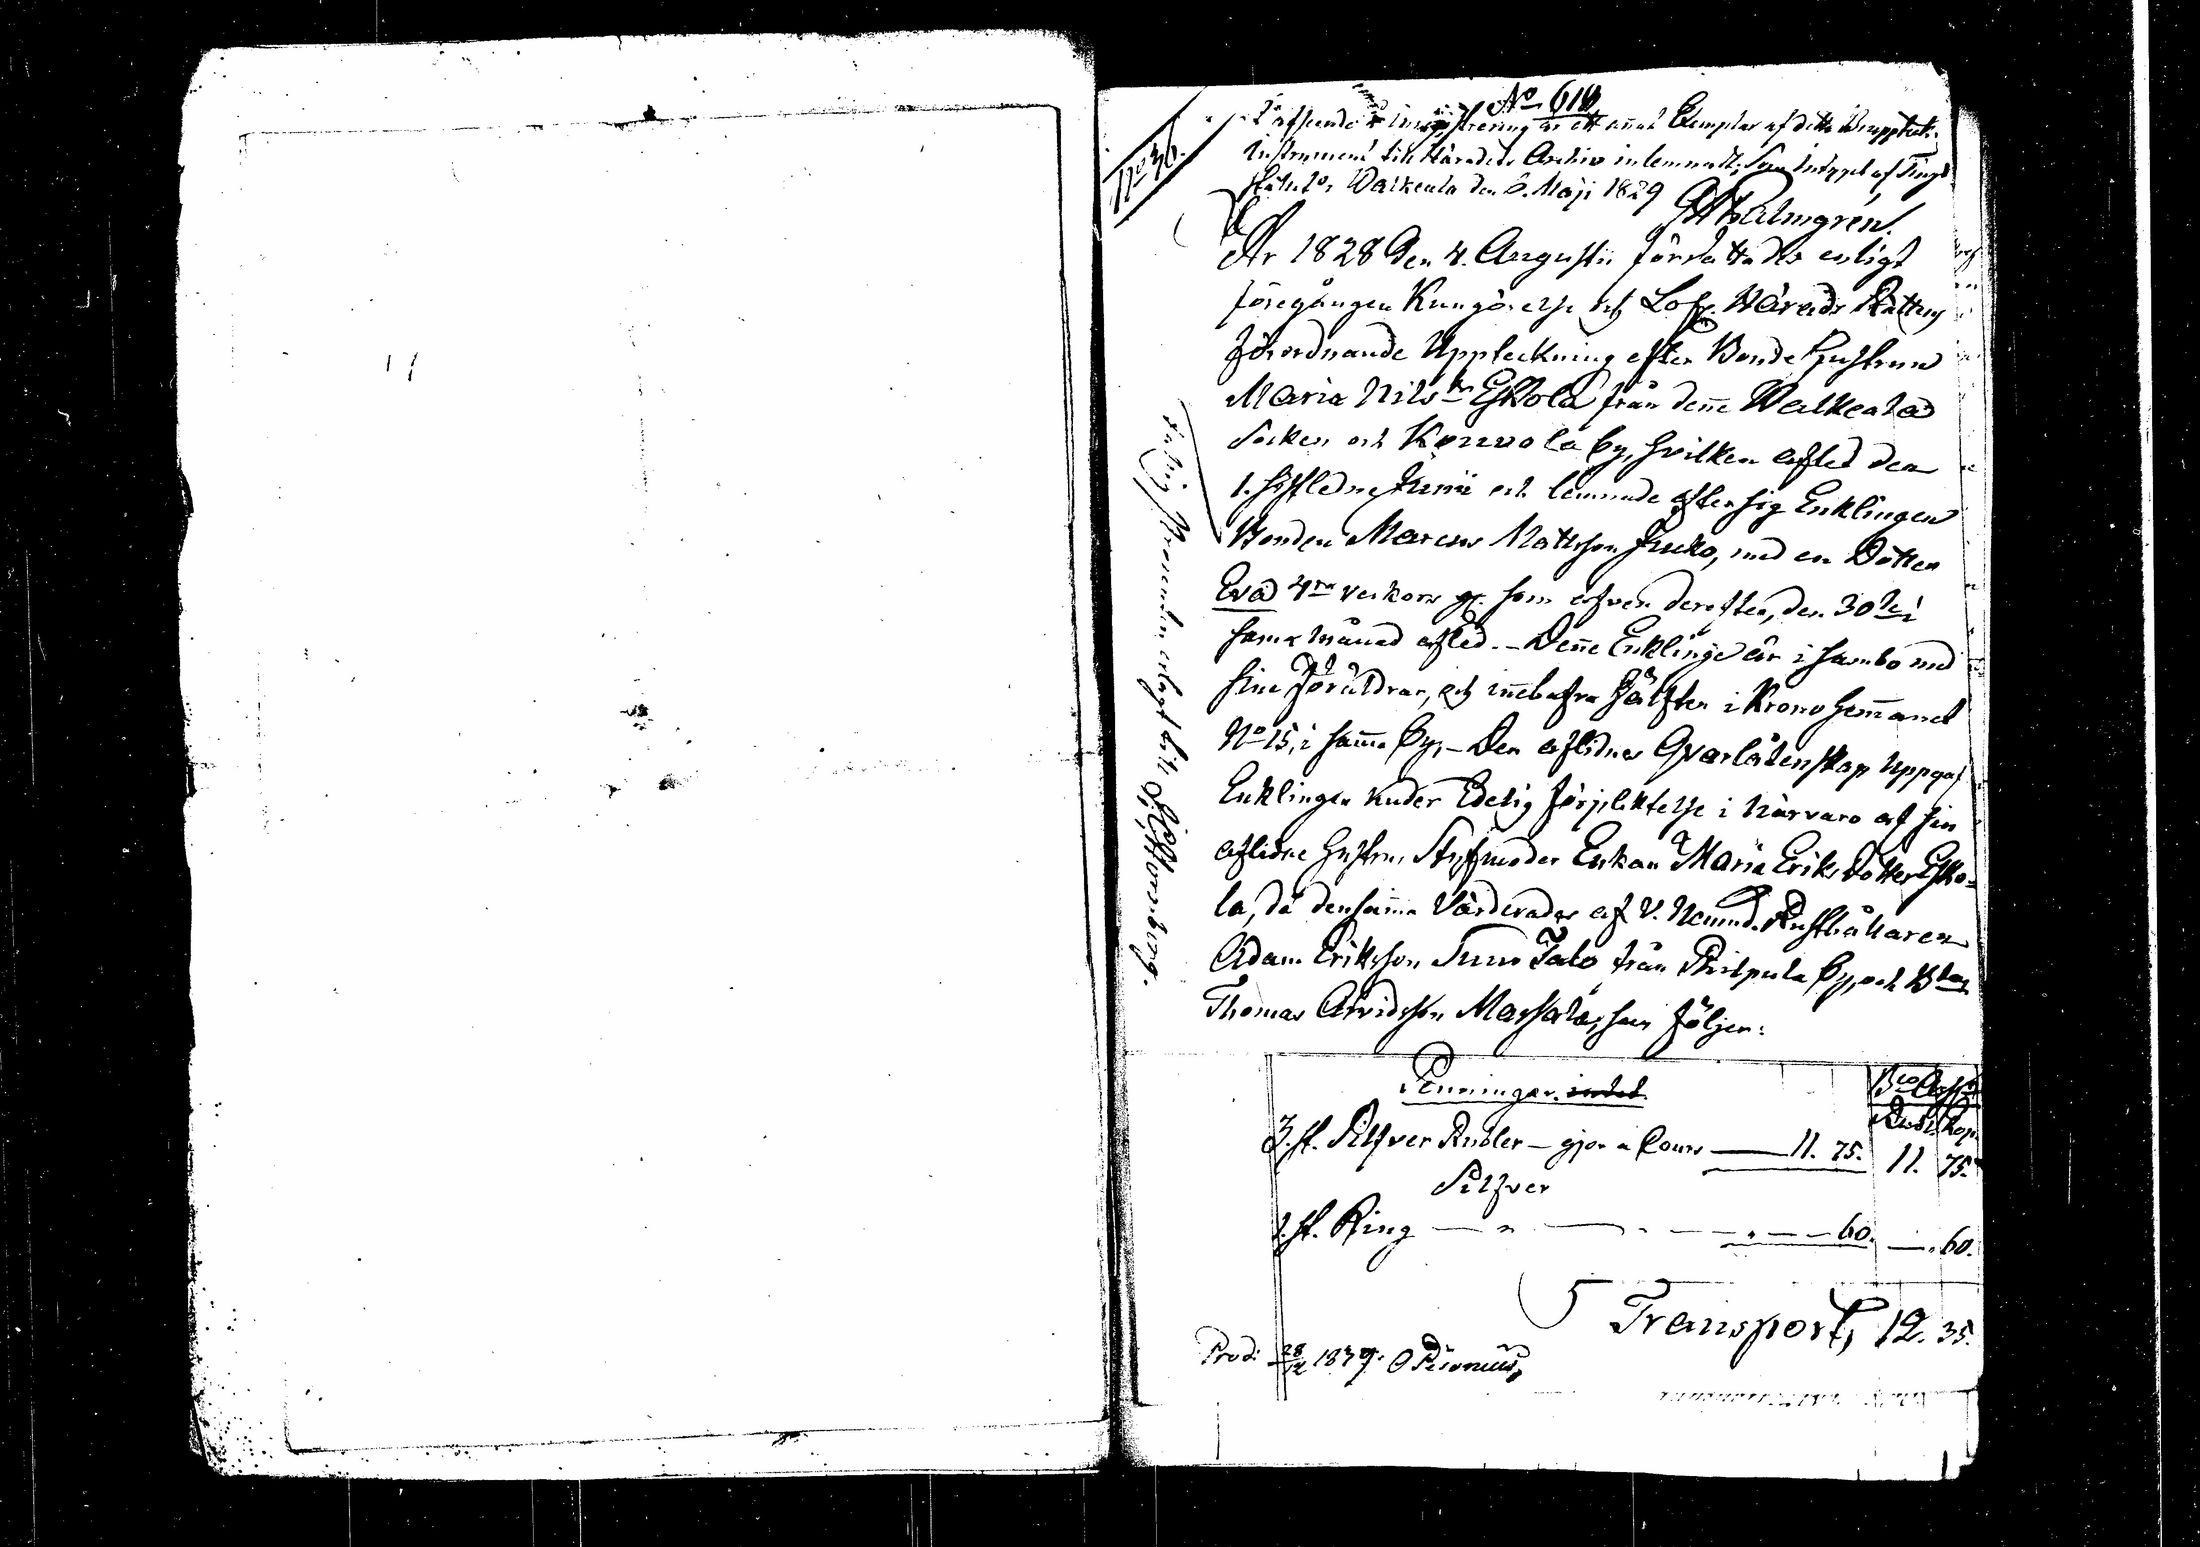 No 610
No 36.
afseende å inregistrering är ett annat Exemplar af detta Uppteckn:
Instrument till Häradets Archiv inlemnadt; Som intygat af Tings
stället Walkeala den 6. Maji 1829
Palmgren.
År 1828 den 4. Augustii förrättades enligt
föregången Kungörelse och Lofl. Härads Rättens
förordnande Uppteckning efter Bonde Hustrun
Maria Nilsdr Eskola från denne Walkeala
Socken och Kouvola by, hvilken afled den
1. sistledne Junii och lemnade efter sig Enklingen
Bonden Marcus Matsson Jucko, med en Dotter
Eva 4ra veckors gl. som äfven derefter, den 30de i
samma månad afled. – Denne Enklinge är i sambo med
sine Föräldrar, och innehafva hälften i Krono hemanet
No 15, i samma by, – Den aflidnes Qvarlåtenskap uppgaf
Enklingen under Edelig förpliktelse i närvaro af sin
aflidne hustrus Styfmoder Enkan Maria Eriks dotter Esko=
la, då densamma Värderades af V. Nämnd. Rusthållaren
Adam Eriksson Talo från by, och Bden
Thomas Arvidsson Massala, som följer:
Fattig Procenten erlagt till Stormbierg.
Penningar. intet
Bco Assig:
Rub. Kop.
3. st. Silfver Rubler – gjör a Cours — 11. 75. 11. 75.
Silfver
1. st. Ring — " — — " — — 60. — " 60.
Transport, 12. 35.
Prod: 28/12 1837.